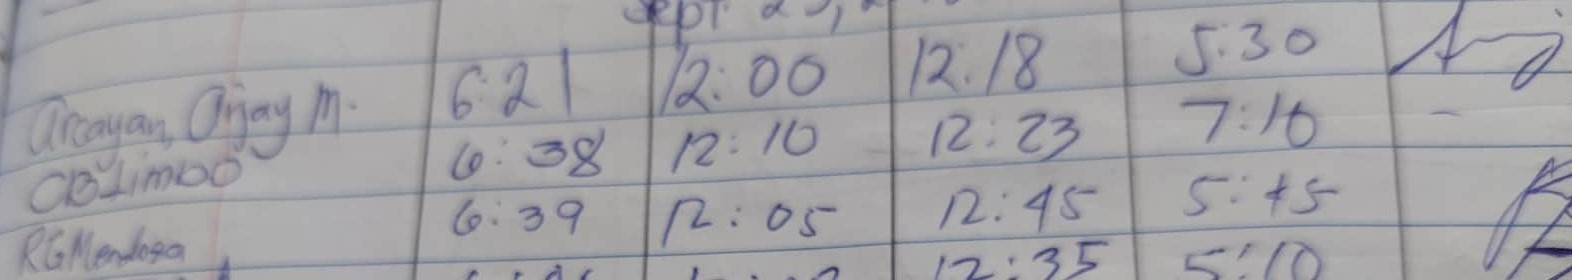 Sept
Arcayan, Arjay M. 6:21 12:00 12:18 5:30
CBLimbo 6:38 12:10 12:23 7:10
RGMendoza 6:39 12:05 12:45 5:45
12:35 5:10